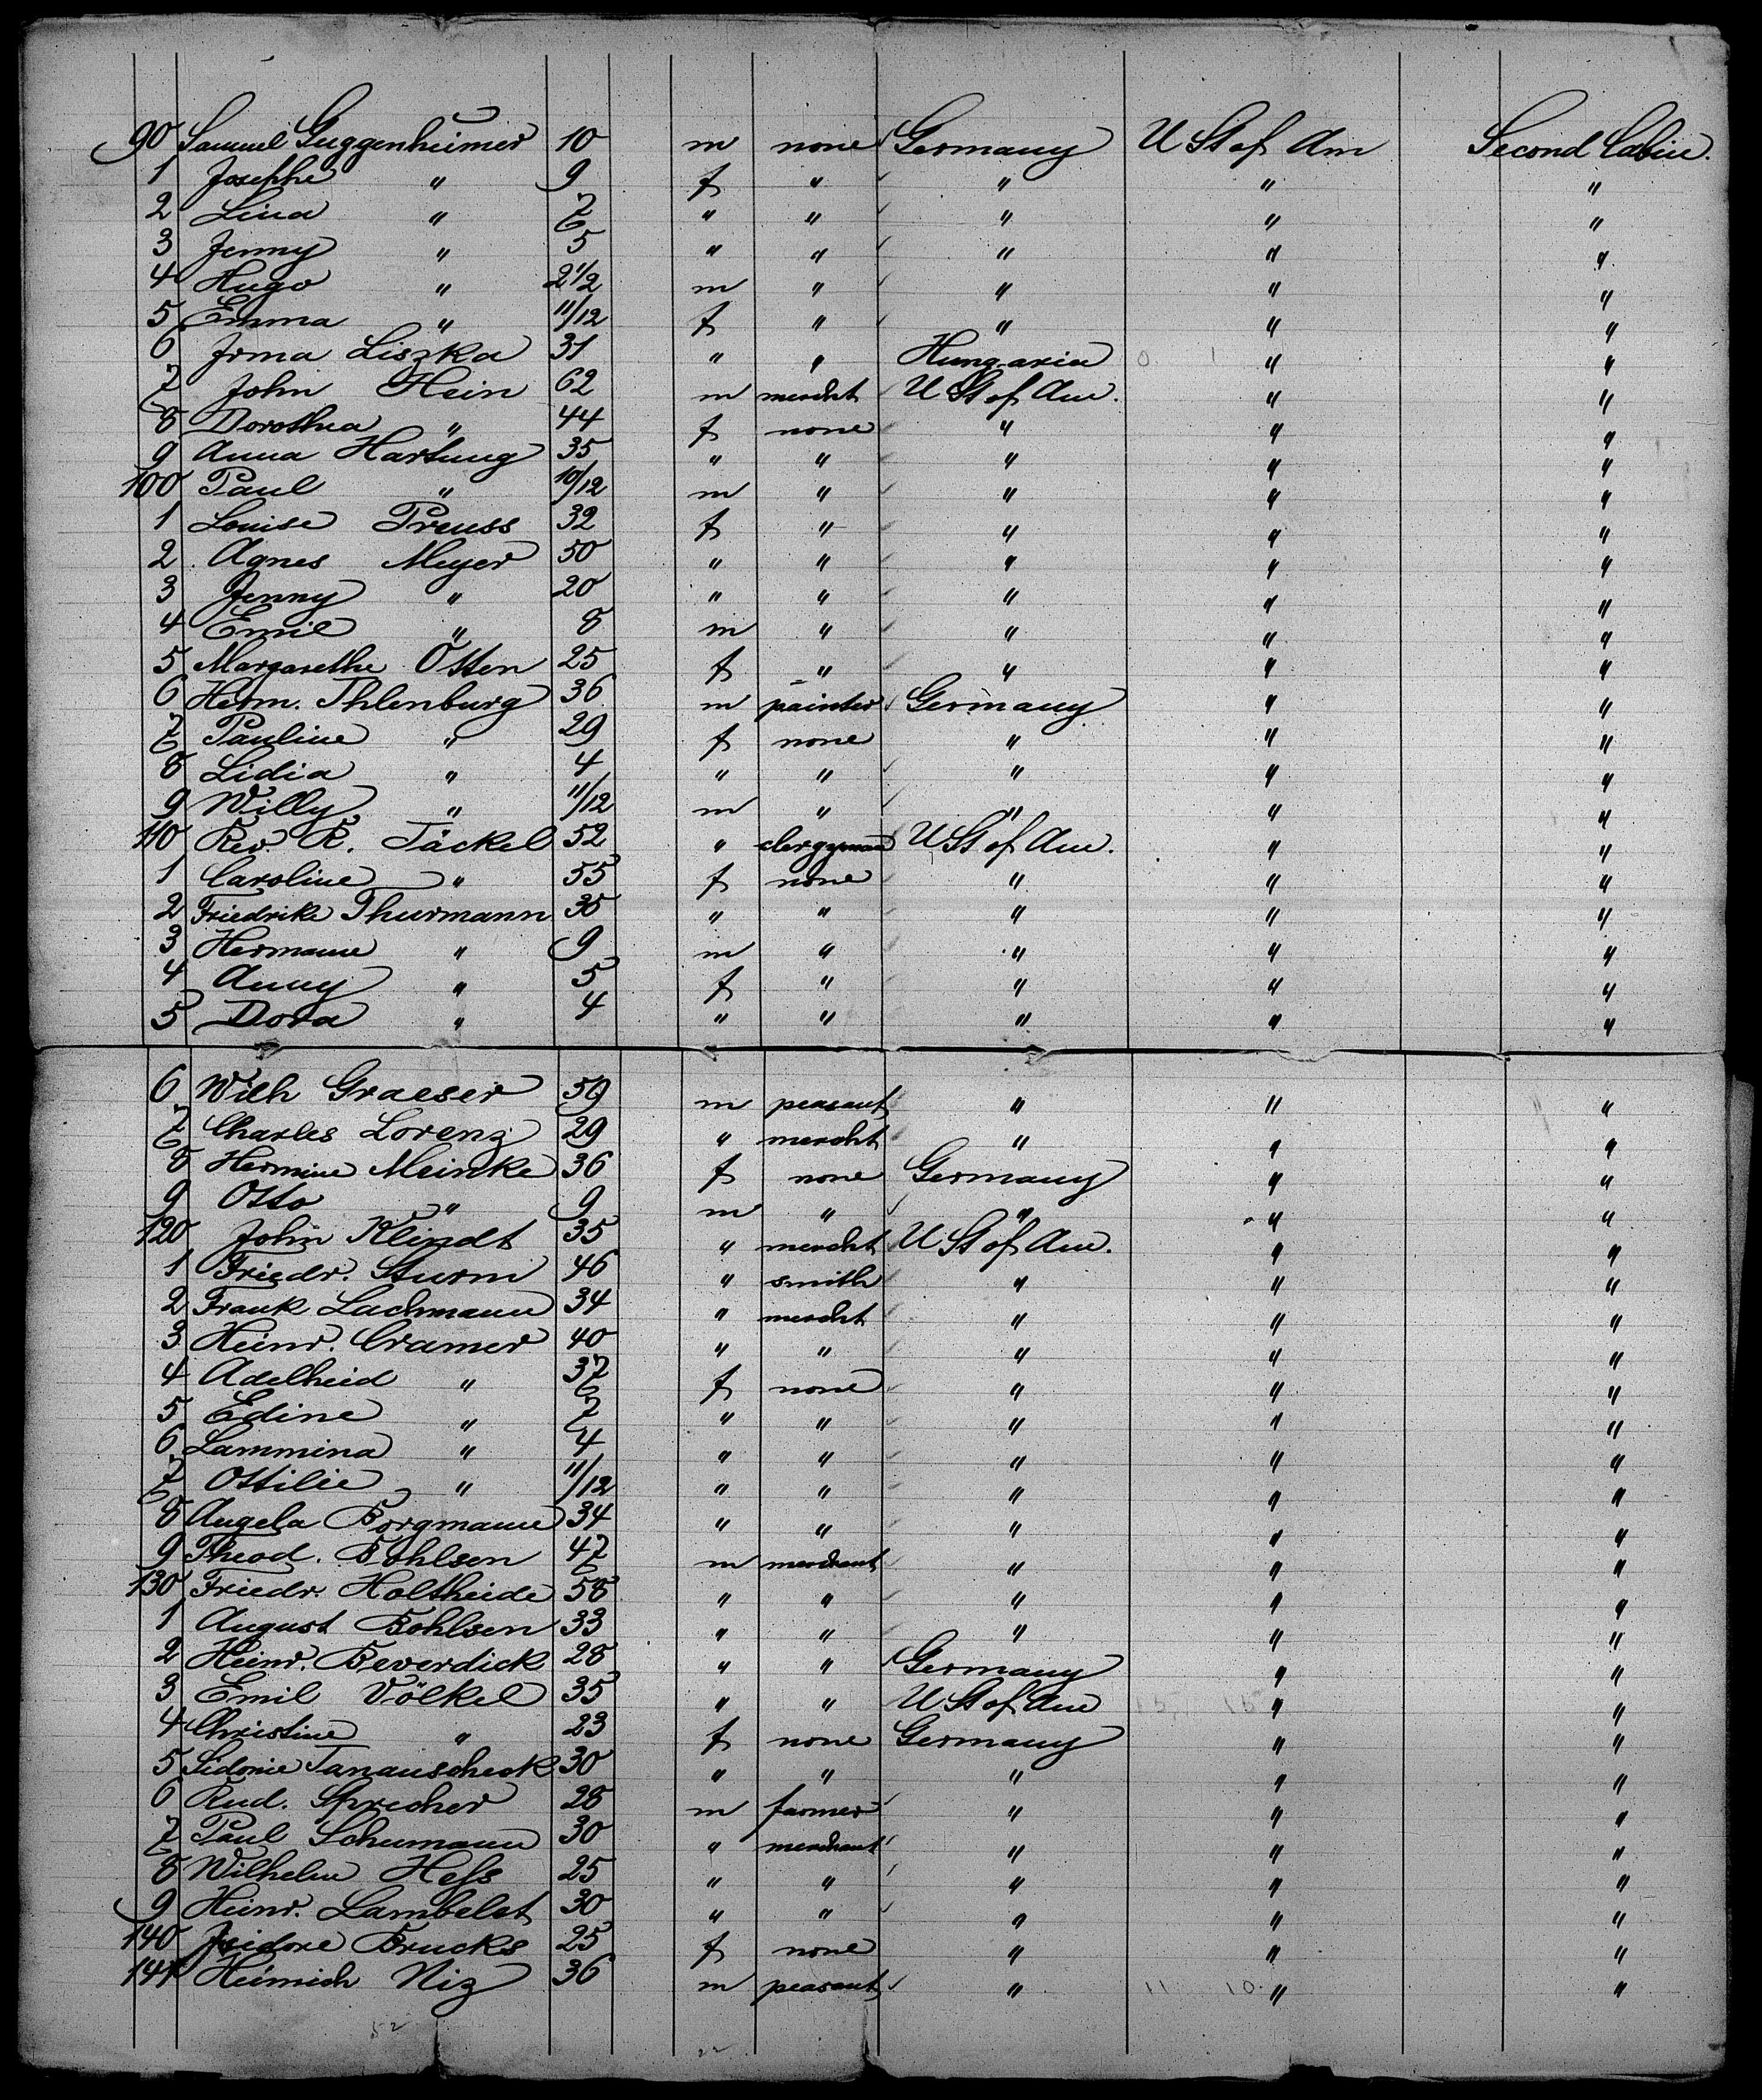 90 Samuel Guggenheimer 10 m none Germany U St of Am Second Cabin.
1 Josephe " 9 f " " " "
2 Lina " 7 " " " " "
3 Jenny " 5 " " " " "
4 Hugo " 2 1/2 m " " " "
5 Emma " 11/12 f " " " "
6 Irma Liszka 31 " " Hungaria " "
7 John Hein 62 m mercht U St of Am. " "
8 Dorothea " 44 f none " " "
9 Anna Hartung 35 " " " " "
100 Paul " 10/12 m " " " "
1 Louise Preuss 32 f " " " "
2 Agnes Meyer 50 " " " " "
3 Jenny " 20 " " " " "
4 Emil " 8 m " " " "
5 Margarethe Otten 25 f " " " "
6 Herm. Ihlenburg 36 m painter Germany " "
7 Pauline " 29 f none " " "
8 Lidia " 4 " " " " "
9 Willy " 11/12 m " " " "
110 Rev. R. Jäckel 52 " clergyman U St of Am. " "
1 Caroline " 55 f none " " "
2 Friedrike Thurmann 35 " " " " "
3 Hermann " 9 m " " " "
4 Anny " 5 f " " " "
5 Dora " 4 " " " " "
6 Wilh Graeser 59 m peasant " " "
7 Charles Lorenz 29 " mercht " " "
8 Hermine Meinke 36 f none Germany " "
9 Otto " 9 m " " " "
120 John Klindt 35 " mercht U St of Am. " "
1 Friedr. Sturm 46 " smith " " "
2 Frank Lachmann 34 " mercht " " "
3 Heinr. Cramer 40 " " " " "
4 Adelheid " 37 f none " " "
5 Edine " 7 " " " " "
6 Lammina " 4 " " " " "
7 Ottilie " 11/12 " " " " "
8 Angela Borgmann 34 " " " " "
9 Theod. Bohlsen 47 m merchant " " "
130 Friedr. Holtheide 58 " " " " "
1 August Bohlsen 33 " " " " "
2 Heinr. Beverdick 28 " " Germany " "
3 Emil Völkel 35 " " U St of Am " "
4 Christine " 23 f none Germany " "
5 Sidonie Tanauscheck 30 " " " " "
6 Rud. Sprecher 28 m farmer " " "
7 Paul Schumann 30 " merchant " " "
8 Wilhelm Hess 25 " " " " "
9 Heinr. Lambelet 30 " " " " "
140 Isidore Brucks 25 f none " " "
141 Heinrich Niz 36 m peasant " 11 10 " "
52